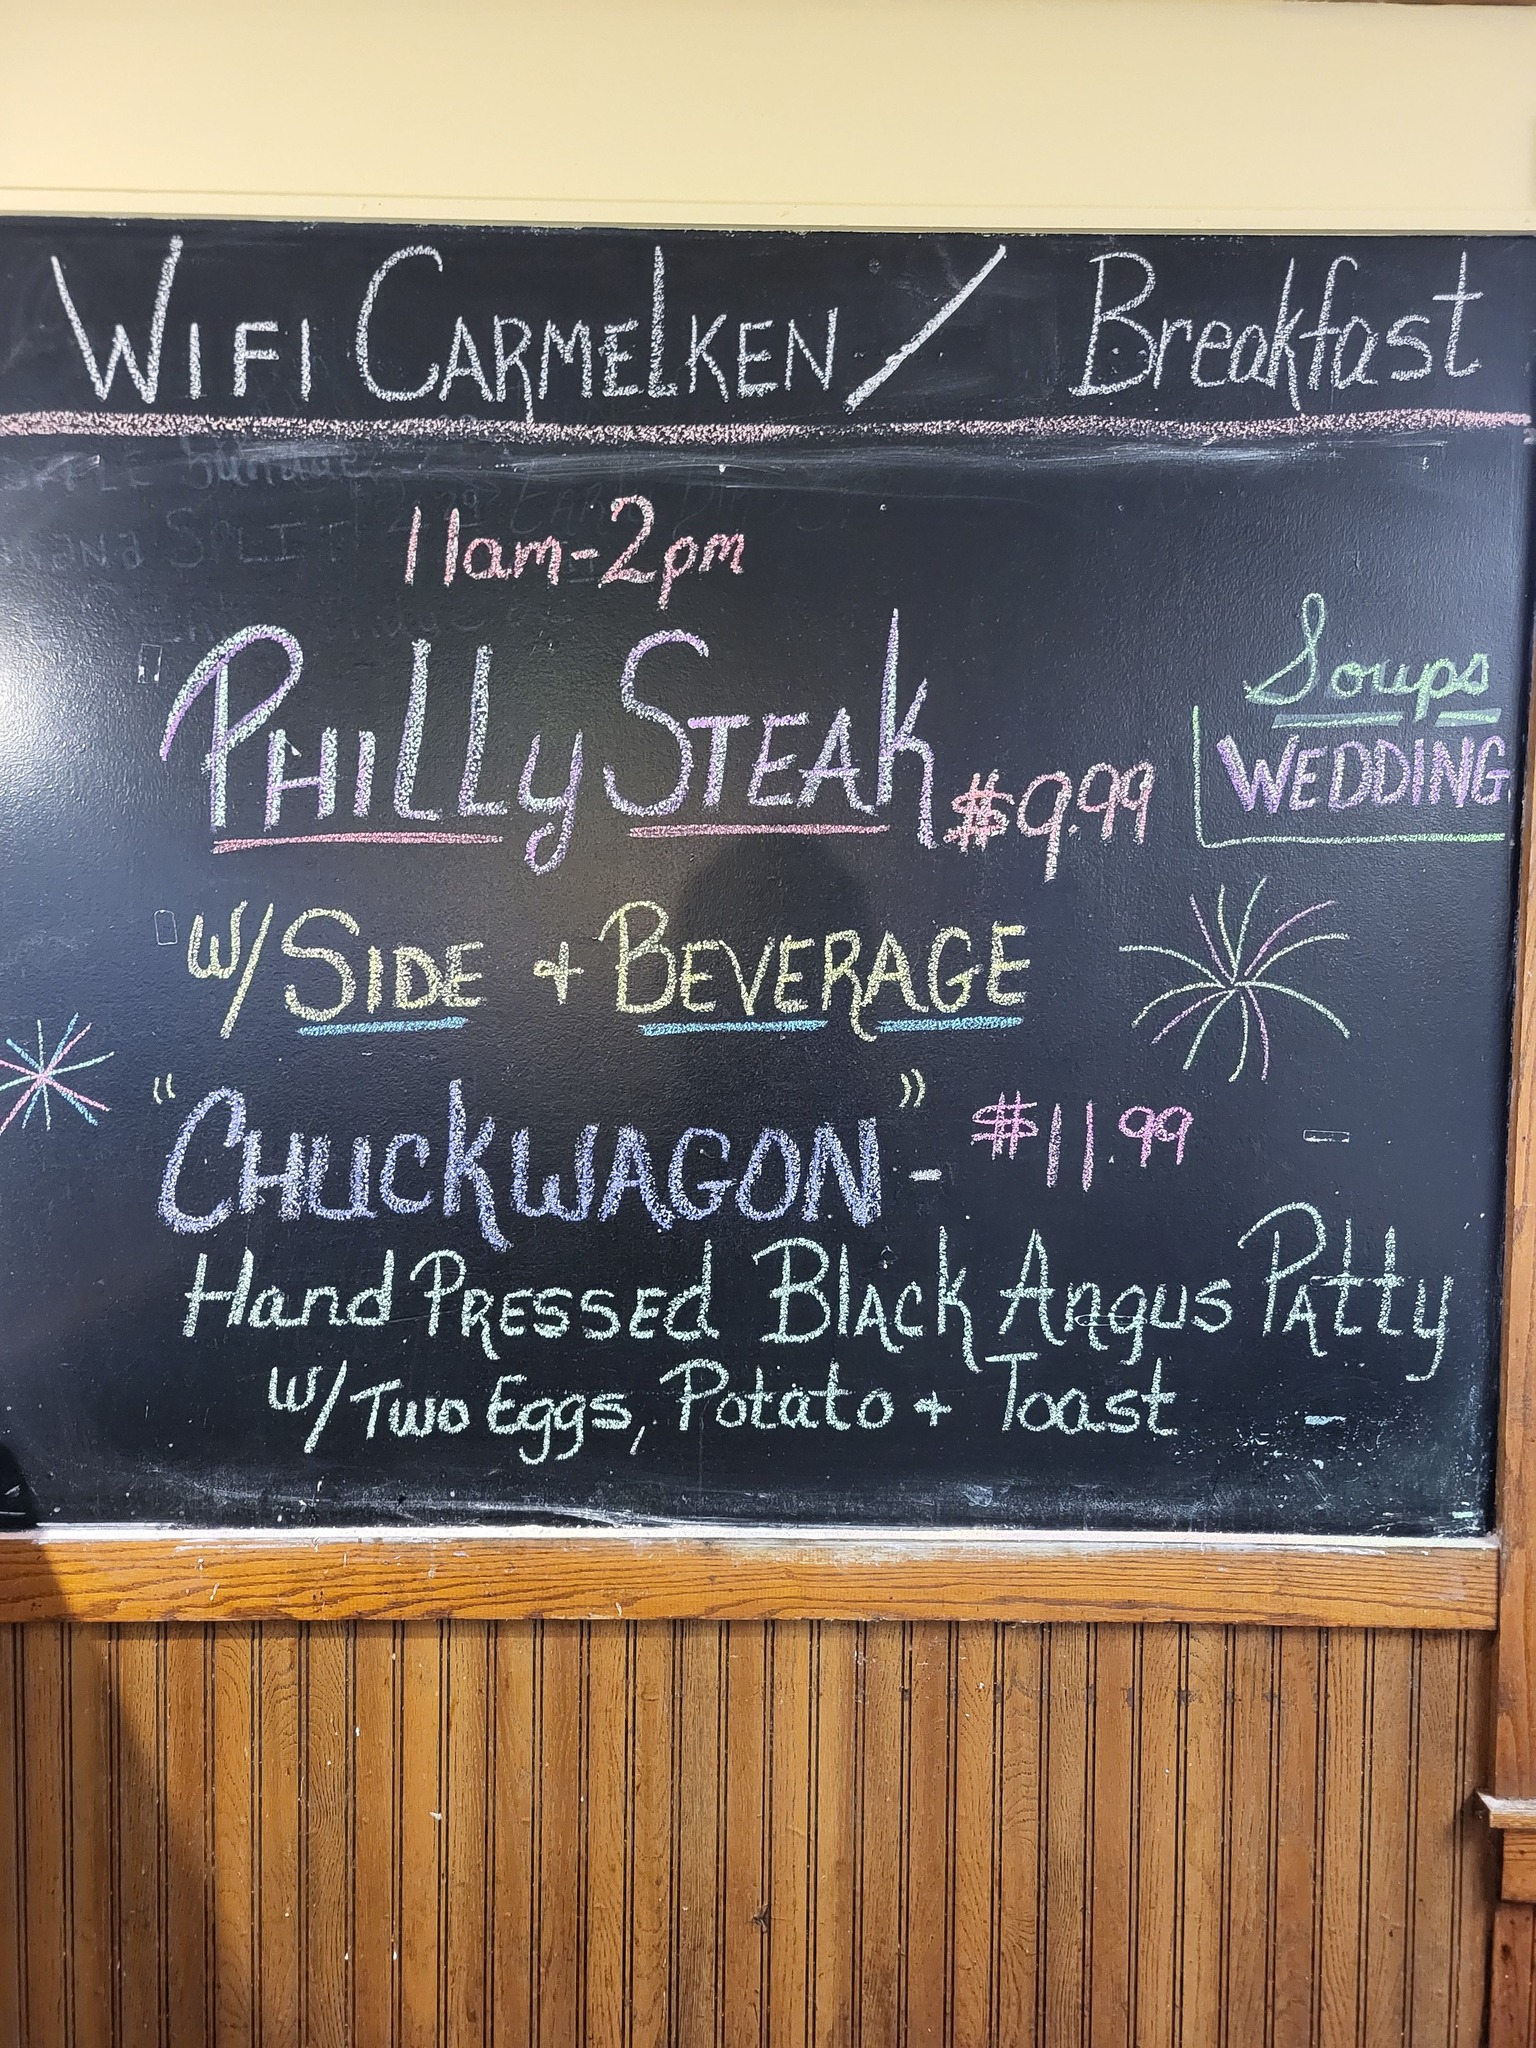 WIFI CARMELKEN / Breakfast
11am-2pm
PHILLY STEAK $9.99
Soups
WEDDING
W/ SIDE + BEVERAGE
"CHUCKWAGON" - $11.99
Hand PRESSED BLACK Angus PATTY
W/ TWO Eggs, Potato + Toast